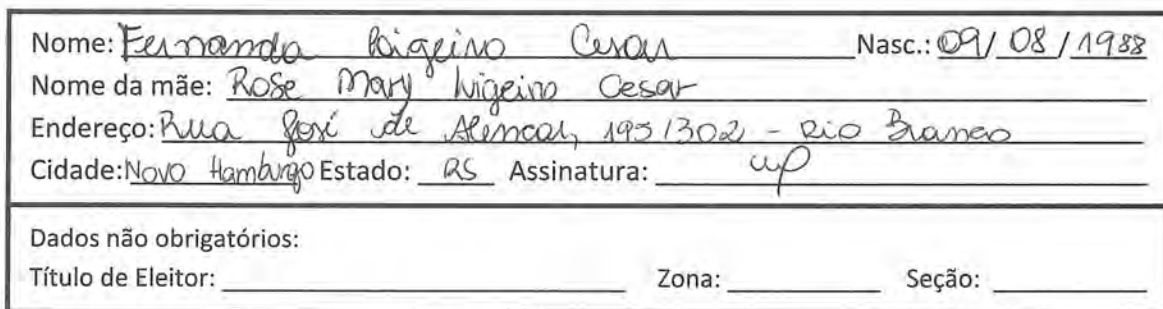 Nome: Fernanda Ligeiro Cesar Nasc.: 09/08/1988
Nome da mãe: Rose Mary Ligeiro Cesar
Endereço: Rua José de Alencar, 195/302 - Rio Branco
Cidade: Novo Hamburgo Estado: RS Assinatura:
Dados não obrigatórios:
Título de Eleitor: Zona: Seção: